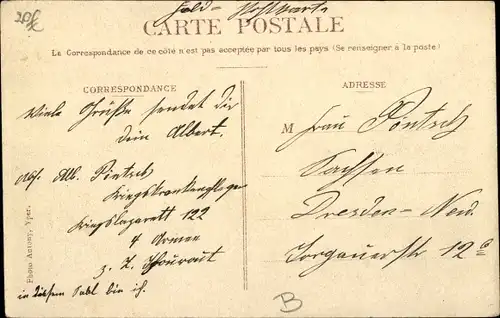 20£
Feld-Postkarte
CARTE POSTALE
La Correspondance de ce côté n'est pas acceptée par tous les pays (Se renseigner à la poste)
CORRESPONDANCE
Viele Grüße sendet dir
dein Albert.
Abs. Alb. Pietsch
Kriegskrankenpfleger
Kriegslazarett 122
4 Armee
z. Z. Thourout
in diesem Saal bin ich.
Photo Antony, Yper.
ADRESSE
M Frau Pöntsch
Sachsen
Dresden-Neu.
Torgauerstr 12
B